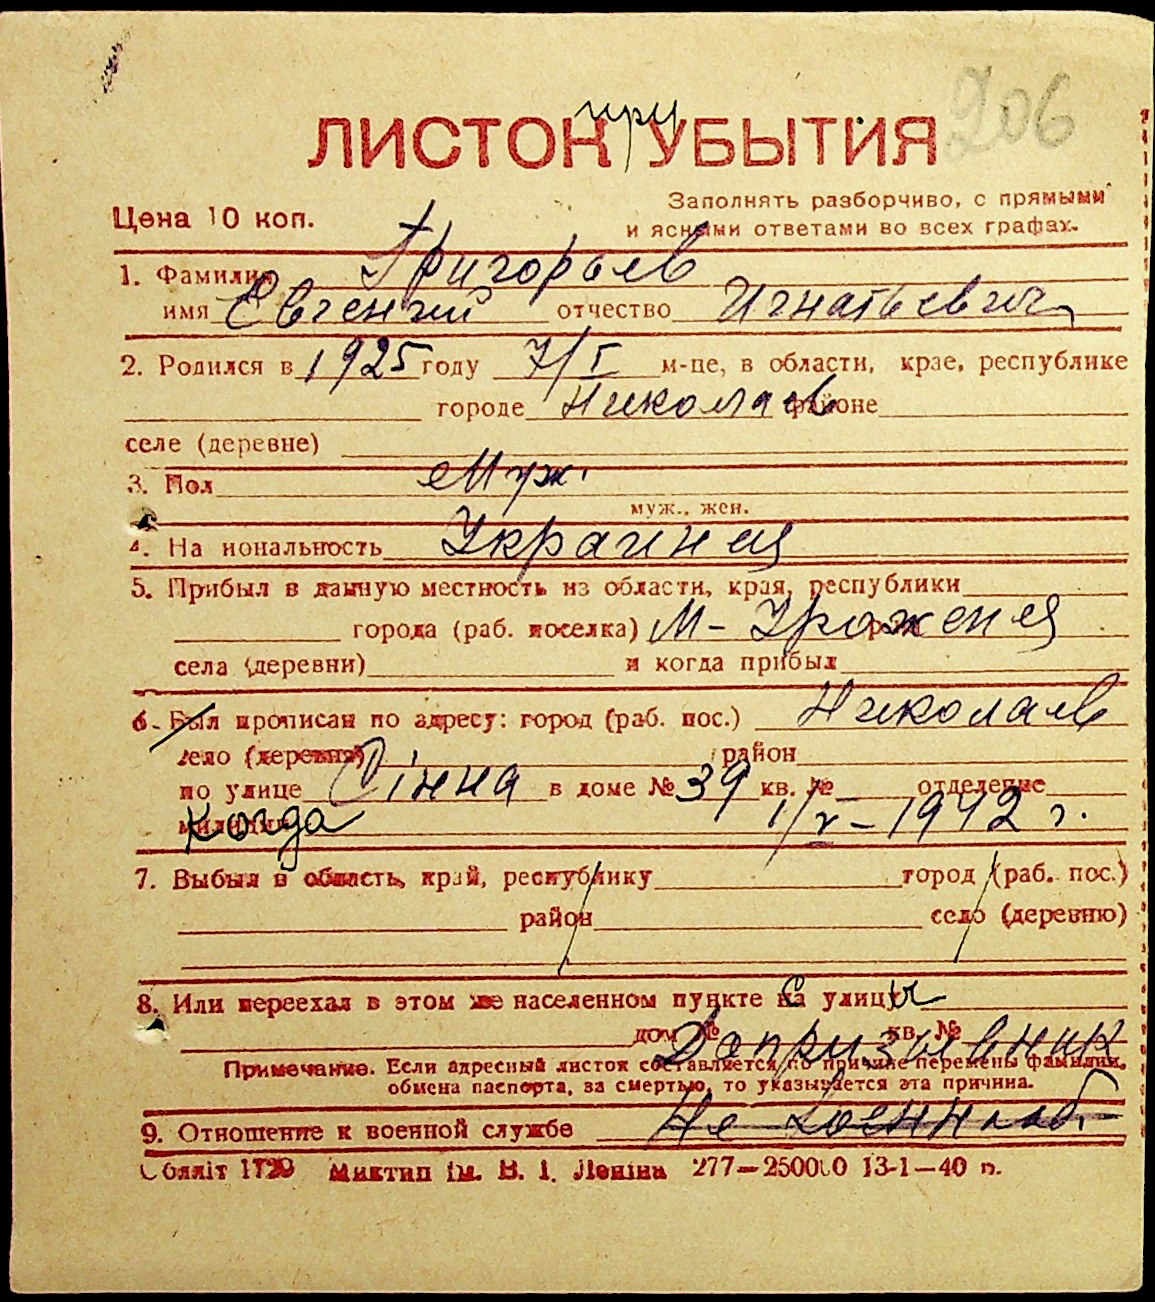 206
при
ЛИСТОК УБЫТИЯ
Цена 10 коп.
Заполнять разборчиво, с прямыми
и ясными ответами во всех графах.
1. Фамилия Григорьев
имя Евгений отчество Игнатьевич
2. Родился в 1925 году 7/I м-це, в области, крае, республике
городе Николаев районе
селе (деревне)
3. Пол Муж.
муж., жен.
4. Национальность Украинец
5. Прибыл в данную местность из области, края, республики
города (раб. поселка) М-Уроженец
села (деревни) и когда прибыл
6. Был прописан по адресу: город (раб. пос.) Николаев
село (деревня) район
по улице Сінна в доме № 39 кв. № отделение
милиции Когда 1/V-1942 г.
7. Выбыл в область, край, республику город (раб. пос.)
район село (деревню)
8. Или переехал в этом же населенном пункте на улицу
дом № кв. №
Допризывник
Примечание. Если адресный листок составляется по причине перемены фамилии,
обмена паспорта, за смертью, то указывается эта причина.
9. Отношение к военной службе Не военнооб.
Облліт 1729 Миктип ім. В. І. Леніна 277—250000 13-1—40 п.